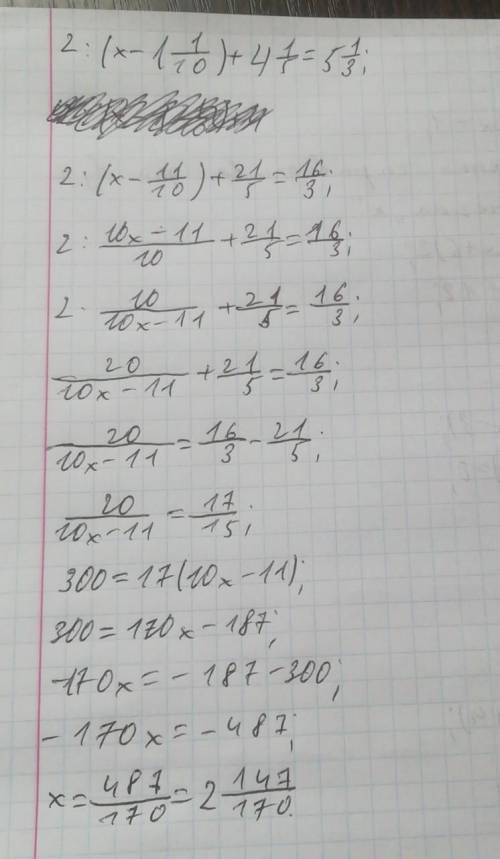 2:(x-1 1/10)+4 1/5=5 1/3;
2:(x-11/10)+21/5=16/3;
2:(10x-11)/10+21/5=16/3;
2·10/(10x-11)+21/5=16/3;
20/(10x-11)+21/5=16/3;
20/(10x-11)=16/3-21/5;
20/(10x-11)=17/15;
300=17(10x-11);
300=170x-187;
-170x=-187-300;
-170x=-487;
x=487/170=2 147/170.